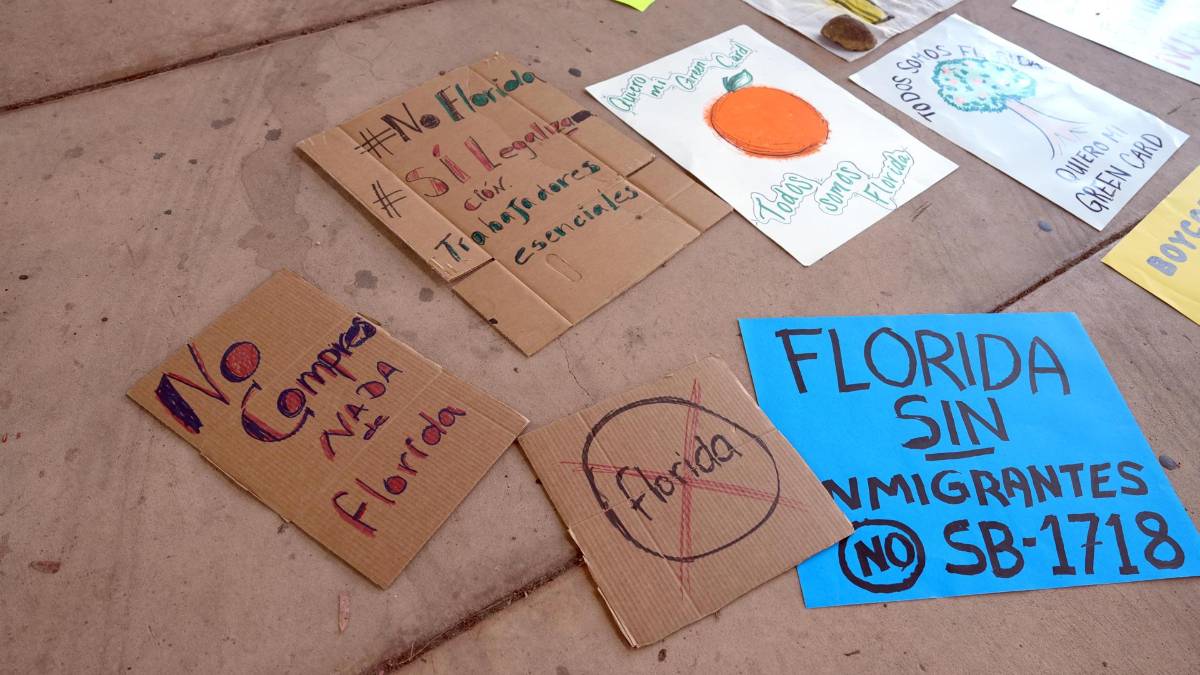 #No Florida
#SÍ Legaliza
ción.
Trabajadores
esenciales
Quiero
mi
Green Card
Todos
somos
Florida
TODOS SOMOS FLORIDA
QUIERO MI
GREEN CARD
BOYC
No
Compres
NADA
de
Florida
Florida
FLORIDA
SIN
NMIGRANTES
NO SB-1718